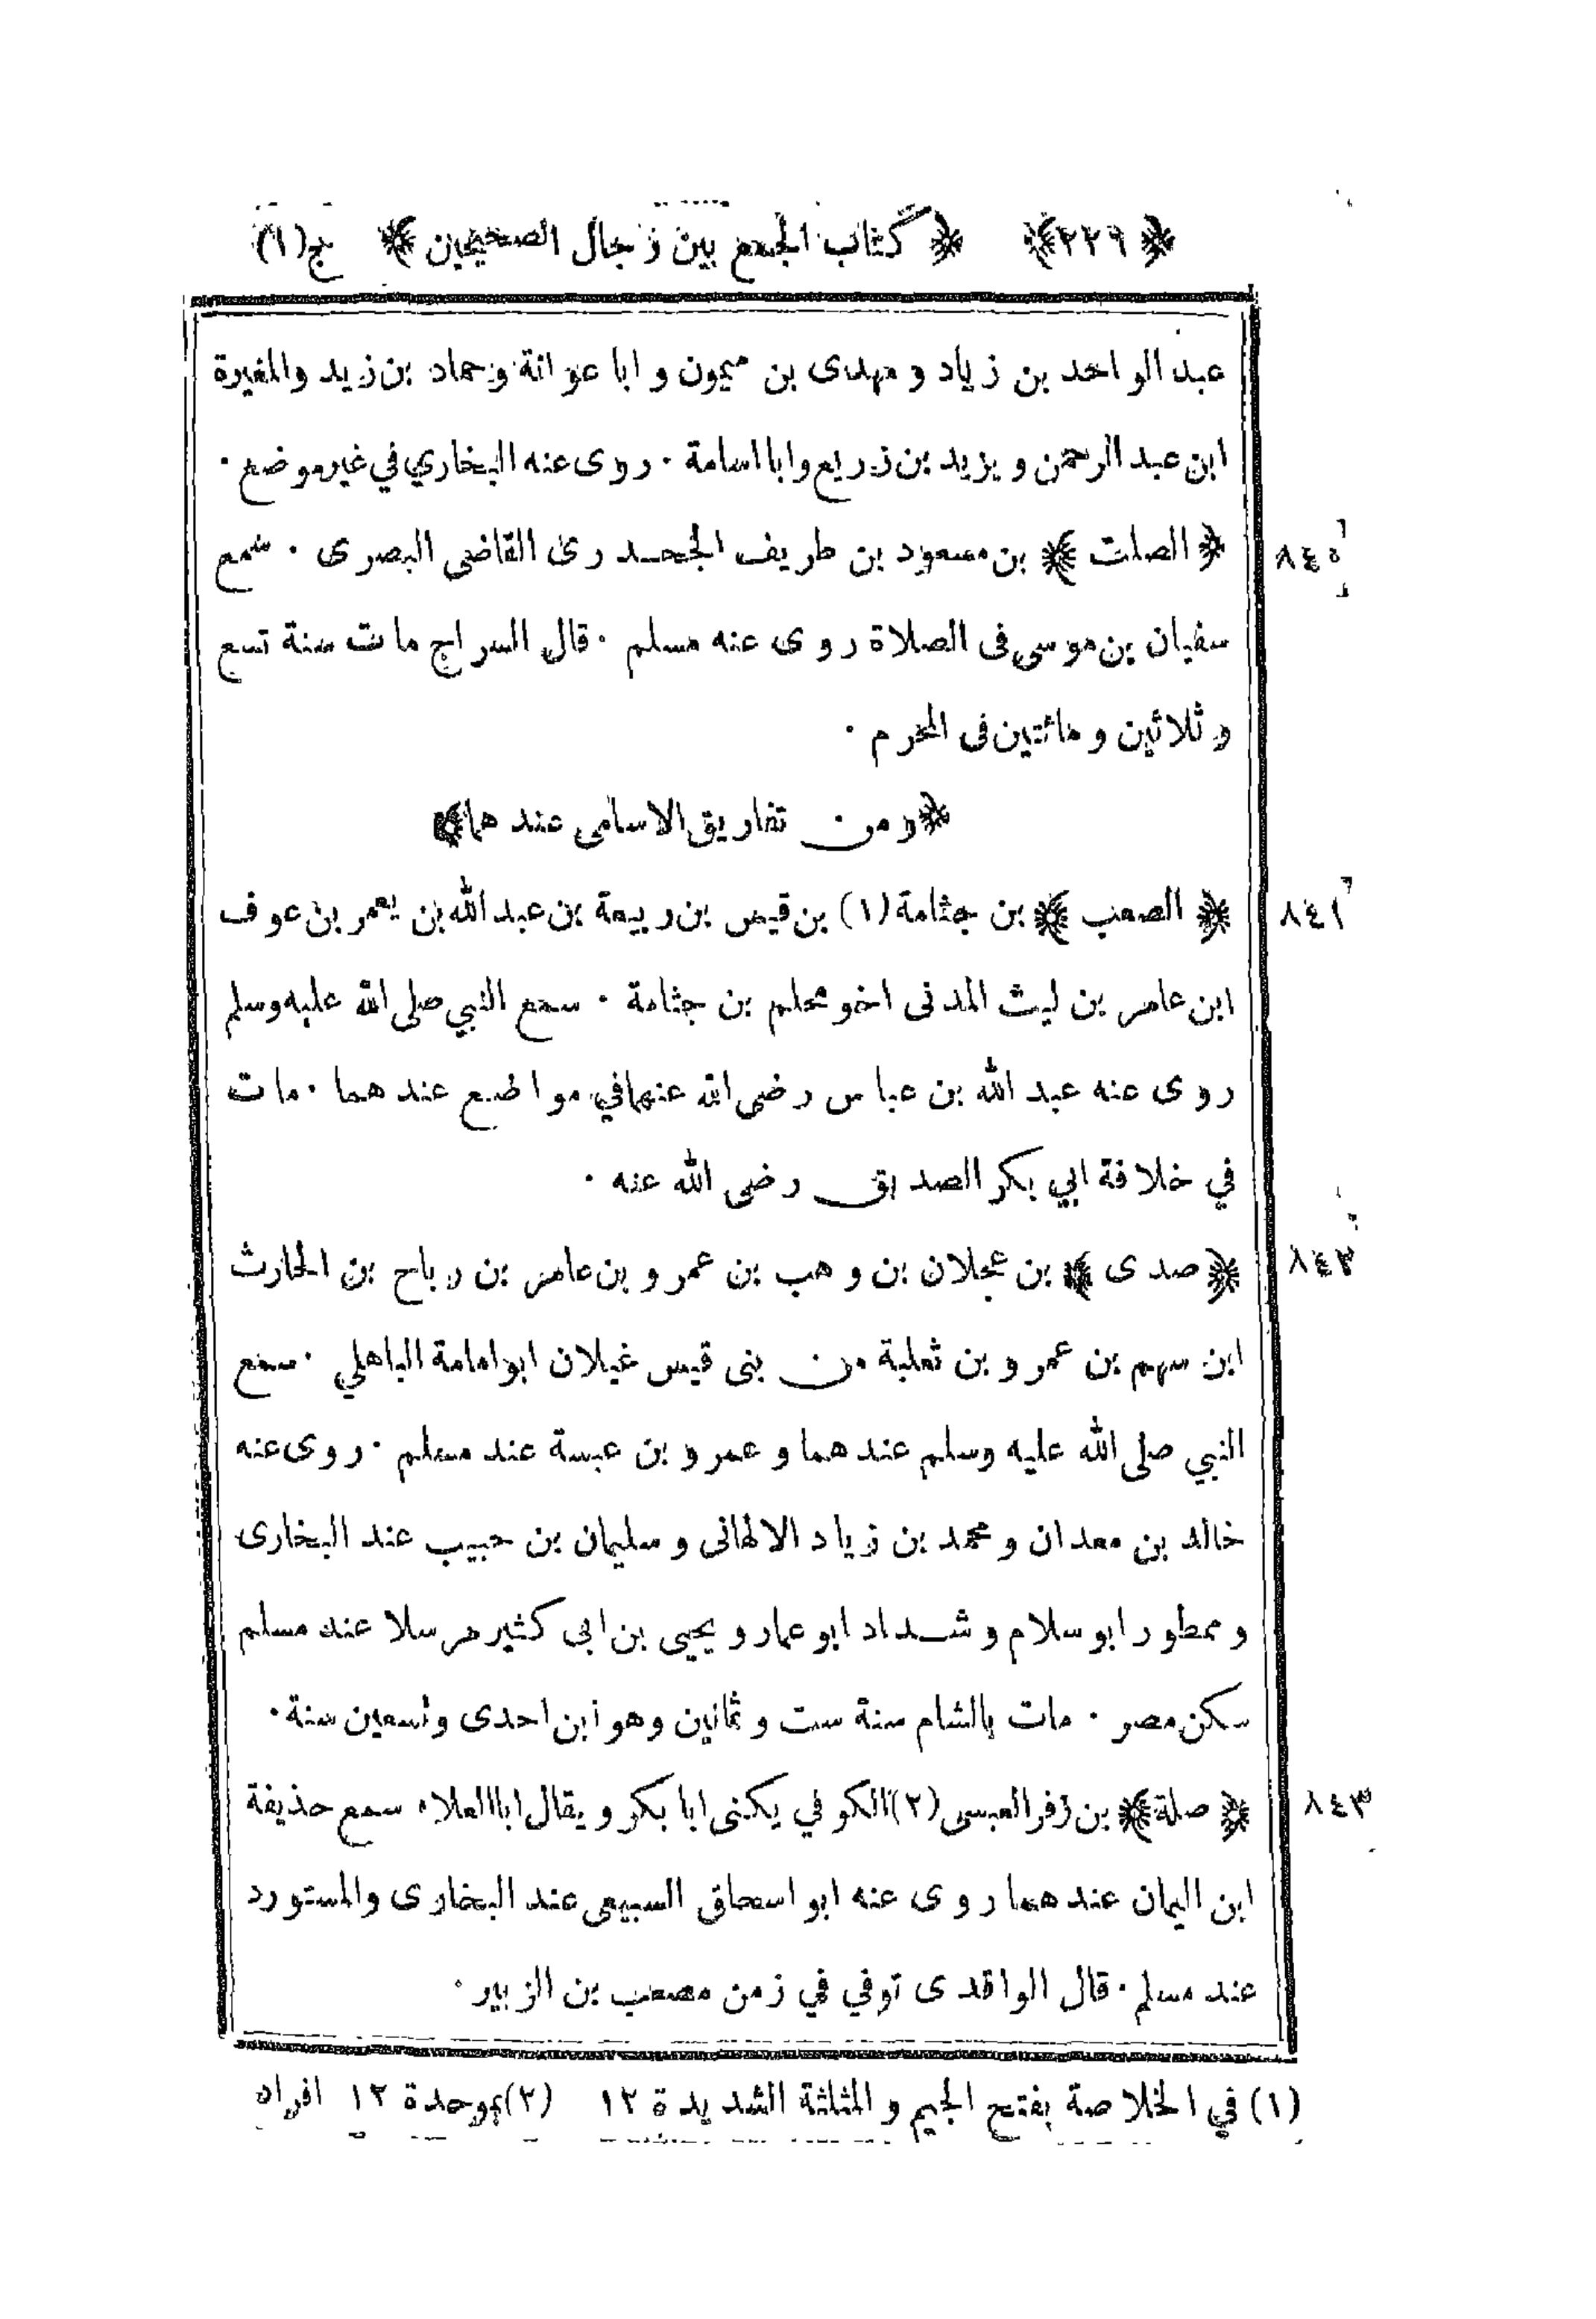 ﴿٢٢٩﴾ ﴿كتاب الجمع بين رجال الصحيحين﴾ ج(١)
عبد الواحد بن زياد و مهدى بن ميمون و ابا عوانة وحماد بن زيد والمغيرة
ابن عبد الرحمن و يزيد بن زريع وابا اسامة ٠ روى عنه البخاري في غير موضع ٠
٨٤٠ ﴿الصلت﴾ بن مسعود بن طريف الجحدرى القاضى البصرى ٠ سمع
سفيان بن موسى فى الصلاة روى عنه مسلم ٠ قال السراج مات سنة تسع
و ثلاثين و مائتين فى المحرم ٠
﴿ومن تفاريق الاسامى عندهما﴾
٨٤١ ﴿الصعب﴾ بن جثامة (١) بن قيس بن ربيعة بن عبد الله بن يعمر بن عوف
ابن عامر بن ليث المدنى اخو محلم بن جثامة ٠ سمع النبي صلى الله عليه وسلم
روى عنه عبد الله بن عباس رضى الله عنهما في مواضع عندهما ٠ مات
في خلافة ابي بكر الصديق رضى الله عنه ٠
٨٤٣ ﴿صدى﴾ بن عجلان بن وهب بن عمرو بن عامر بن رباح بن الحارث
ابن سهم بن عمرو بن ثعلبة من بنى قيس غيلان ابو امامة الباهلي ٠ سمع
النبي صلى الله عليه وسلم عندهما و عمرو بن عبسة عند مسلم ٠ روى عنه
خالد بن معدان و محمد بن زياد الالهانى و سليمان بن حبيب عند البخارى
و ممطور ابو سلام و شداد ابو عمار و يحيى بن ابى كثير مرسلا عند مسلم
سكن مصر ٠ مات بالشام سنة ست و ثمانين وهو ابن احدى وتسعين سنة ٠
٨٤٣ ﴿صلة﴾ بن زفر العبسى (٢) الكوفي يكنى ابا بكر و يقال ابا العلاء سمع حذيفة
ابن اليمان عندهما روى عنه ابو اسحاق السبيعى عند البخارى والمستورد
عند مسلم ٠ قال الواقدى توفي في زمن مصعب بن الزبير ٠
(١) في الخلاصة بفتح الجيم و المثلثة الشديدة ١٢ (٢) بموحدة ١٢ افراد